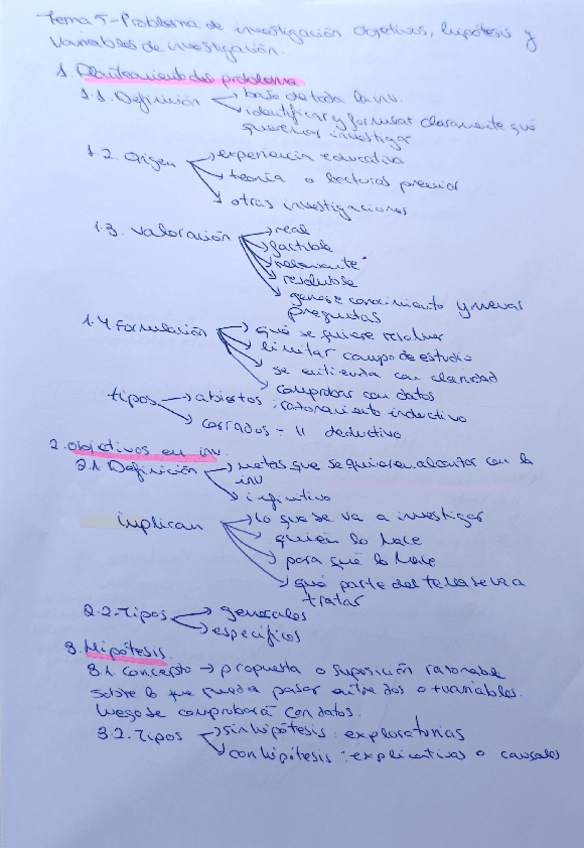 Tema 5-Problema de investigación objetivos, hipótesis y
variables de investigación.
1. Planteamiento del problema
1.1. Definición → base de toda la inv.
→ identificar y formular claramente qué
queremos investigar
1.2. Origen → experiencia educativa
→ teoría o lecturas previas
→ otras investigaciones
1.3. Valoración → real
→ factible
→ relevante
→ resoluble
→ genere conocimiento y nuevas
preguntas
1.4. Formulación → qué se quiere resolver
→ limitar campo de estudio
→ se entienda con claridad
→ comprobar con datos
tipos → abiertos: razonamiento inductivo
→ cerrados = " deductivo
2. Objetivos en inv.
2.1. Definición → metas que se quieren alcanzar con la
inv
→ infinitivo
implican → lo que se va a investigar
→ quién lo hace
→ para qué lo hace
→ qué parte del tema se va a
tratar
2.2. Tipos → generales
→ específicos
3. Hipótesis.
3.1. Concepto → propuesta o suposición razonable
sobre lo que puede pasar entre dos o + variables.
Luego se comprobará con datos.
3.2. Tipos → sin hipótesis: exploratorias
→ con hipótesis: explicativas o causales